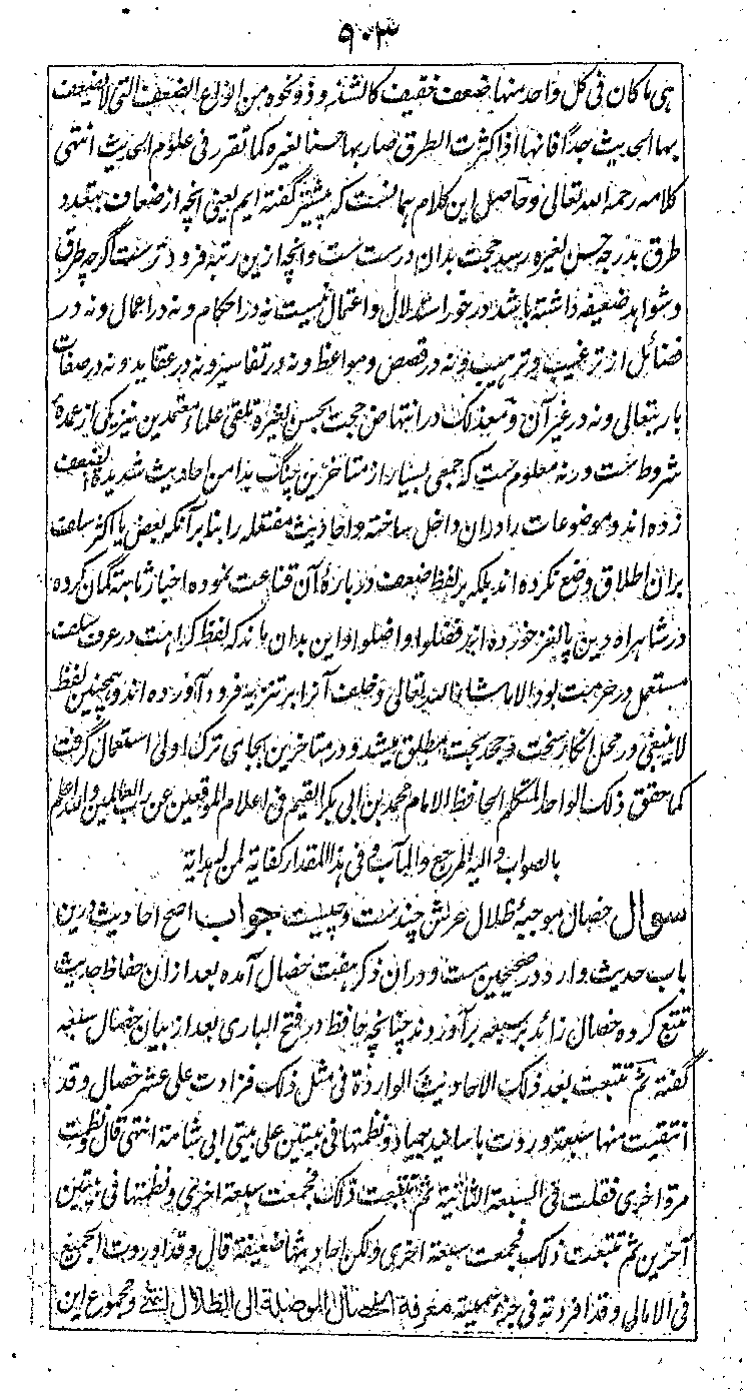 ۹۰۳
هی ما کان فی کل واحد منها ضعف خفیف کالشذوذ ونحوه من انواع الضعف التی لا یضعف
بها الحدیث جدا فانها اذا کثرت الطرق صار بها حسنا لغیره کما تقرر فی علوم الحدیث انتهی
کلامه رحمه الله تعالی وحاصل این کلام همانست که پیشتر گفته ایم یعنی انچه از ضعاف بتعدد
طرق بدرجه حسن لغیره رسید حجت بدان درست ست وانچه ازین رتبه فروتر ست اگرچه طرق
وشواهد ضعیفه داشته باشد در خور استدلال واعتمال نیست نه در احکام ونه در اعمال ونه در
فضائل از ترغیب وترهیب ونه در قصص ومواعظ ونه در تفاسیر ونه در عقاید ونه در صفات
باریتعالی ونه در غیر آن ومعذلک در انتهاض حجت بحسن لغیره تلقی علماء معتمدین نیز یکی از عمدهٔ
شروط ست ورنه معلوم ست که جمعی بسیار از متاخرین چنگ بدامن احادیث شدیدة الضعف
زده اند وموضوعات را دران داخل ساخته واحادیث مفتعله را بنا بر آنکه بعض یا اکثر سلف
بران اطلاق وضع نکرده اند بلکه بر لفظ ضعف در بارهٔ آن قناعت نموده اخبار ثابته گمان کرده
در شاهراه دین پالغز خورده اند فضلوا واضلوا واین بدان ماند که لفظ کراهت در عرف سلف
مستعمل در حرمت بود الا ما شاء الله تعالی وخلف آنرا بر تنزیه فرود آورده اند وهمچنین لفظ
لا ینبغی در محل انکار سخت وجحد بحت مطلق میشد ودر متاخرین بجای ترک اولی استعمال گرفت
کما حقق ذلک الواحد المتکلم الحافظ الامام محمد بن ابی بکر القیم فی اعلام الموقعین عن رب العالمین والله اعلم
بالصواب والیه المرجع والمآب وفی هذا المقدار کفایة لمن له هدایة
سوال خصال موجبهٔ ظلال عرش چند ست وچیست جواب اصح احادیث درین
باب حدیث وارد در صحیحین ست ودران ذکر هفت خصال آمده بعد ازان حفاظ حدیث
تتبع کرده خصال زائد بر سبعه برآوردند چنانچه حافظ در فتح الباری بعد از بیان خصال سبعه
گفته ثم تتبعت بعد ذلک الاحادیث الواردة فی مثل ذلک فزادت علی عشر خصال وقد
انتقیت منها سبعة وردت باسانید جیاد ونظمتها فی بیتین علی بیتی ابی شامة انتهی قال ونظمت
مرة اخری فقلت فی السبعة الثانیة ثم تتبعت ذلک فجمعت سبعة اخری ونظمتها فی بیتین
آخرین ثم تتبعت ذلک فجمعت سبعة اخری ولکن احادیثها ضعیفة قال وقد اوردت الجمیع
فی الامالی وقد افردته فی جزء سمیته معرفة الخصال الموصلة الی الظلال انتهی ومجموع این